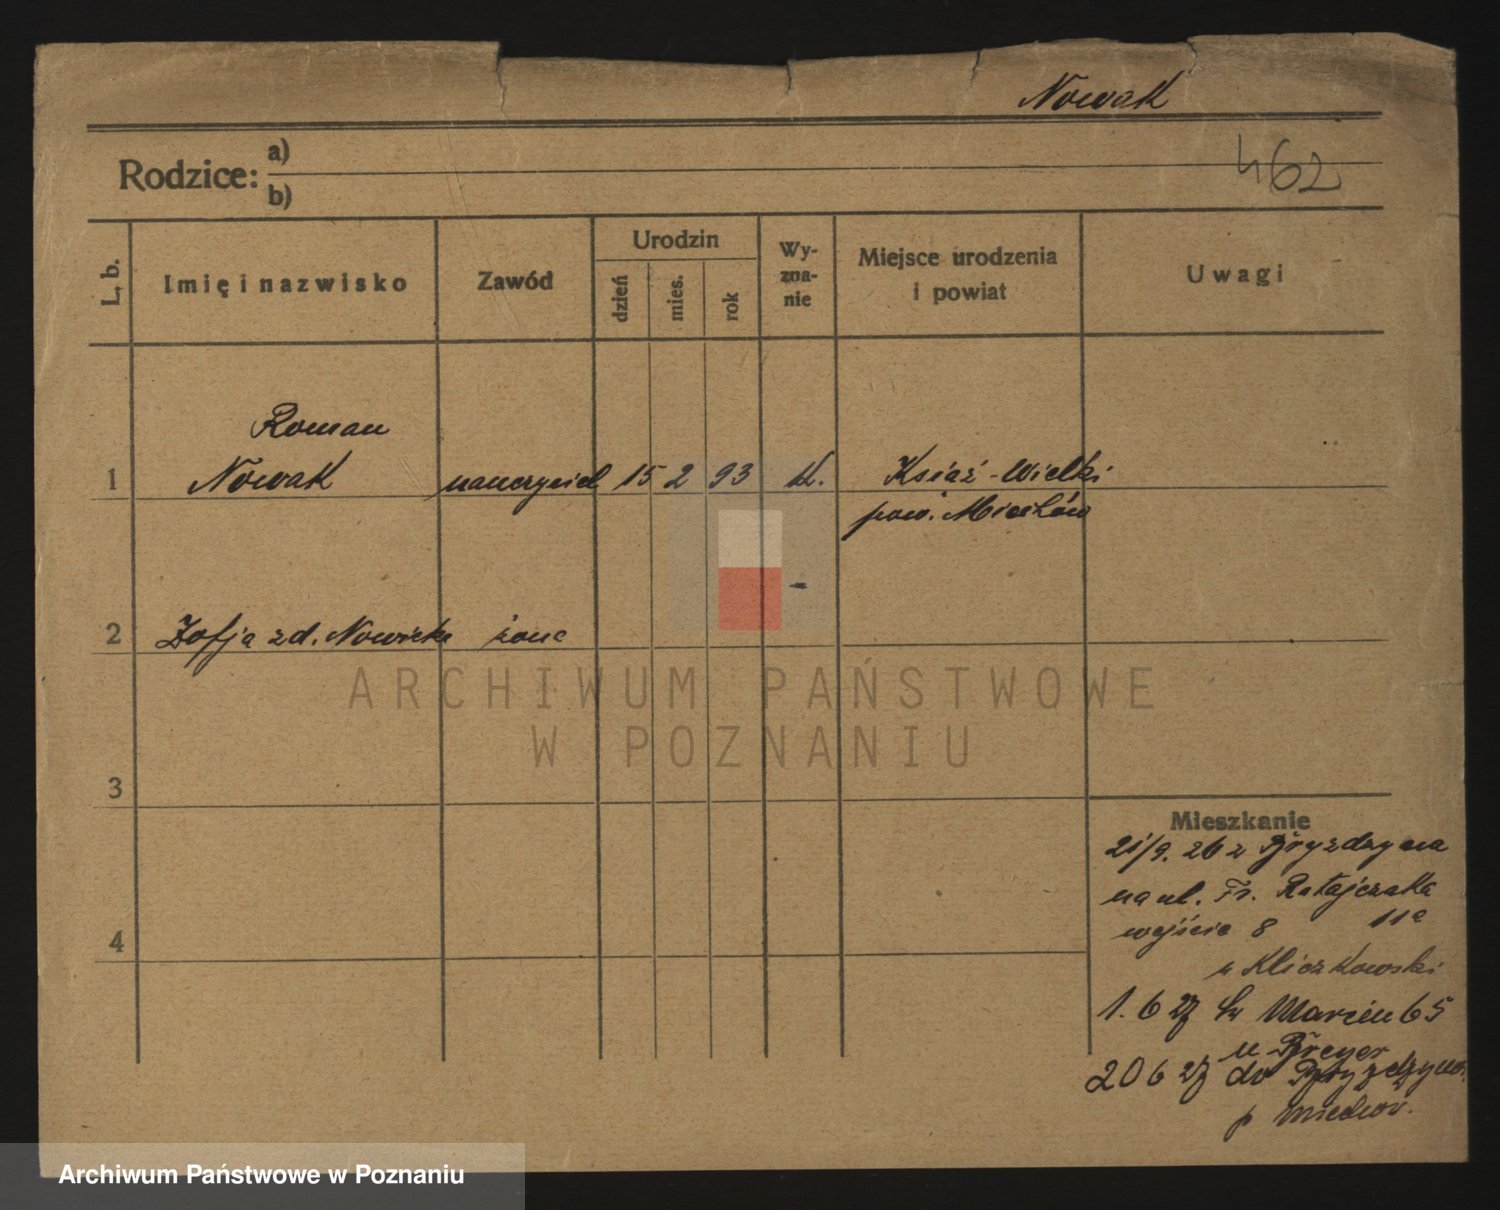 Nowak
462
Rodzice: a)
b)
L. b. Imię i nazwisko Zawód Urodzin dzień mies. rok Wyznanie Miejsce urodzenia i powiat Uwagi
Roman
1 Nowak nauczyciel 15 2 93 K. Książ-Wielki
pow. Miechów
2 Zofja zd. Nowicka żona -
ARCHIWUM PAŃSTWOWE
W POZNANIU
3
Mieszkanie
21/9. 26 z Bryzdzyna
na ul. Fr. Ratajczaka
4 wejście 8 11a
u Kliczkowski
1. 6 27 Św Marcin 65
u Breyer
20 6 27 do Bryzdzyna
p Miechów.
Archiwum Państwowe w Poznaniu